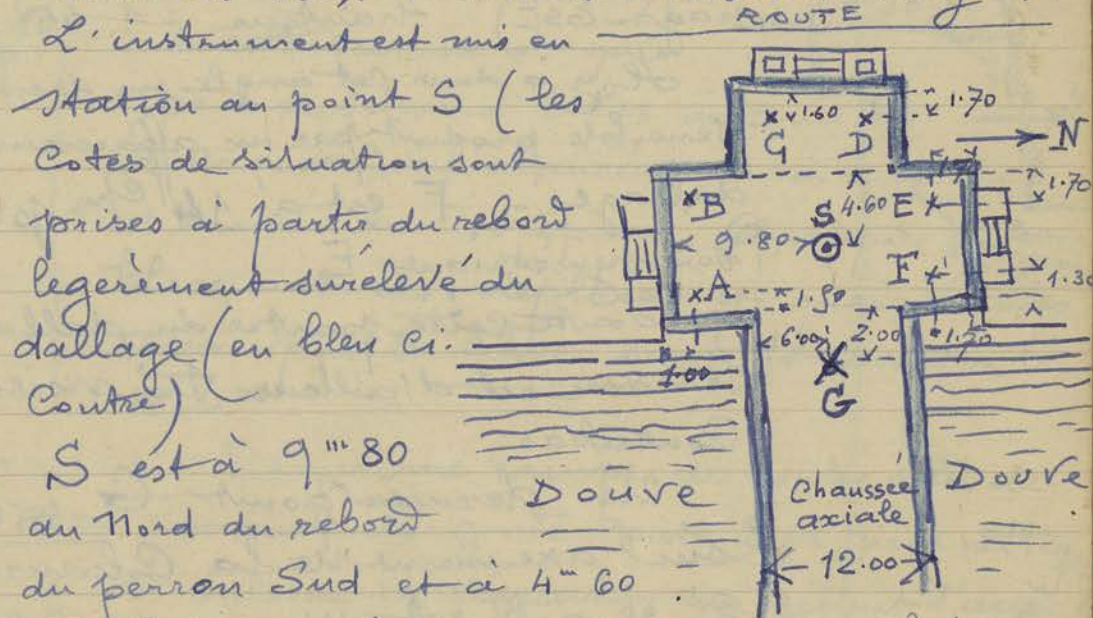 ROUTE
L'instrument est mis en
station au point S (les
Cotes de situation sont
prises à partir du rebord
legèrement surélevé du
dallage (en bleu ci.
Contre)
S est à 9m80
au Nord du rebord
du perron Sud et à 4m60
1.60
1.70
G
D
N
1.70
B
S
4.60
E
9.80
F
A
1.50
1.30
6.00
2.00
1.20
1.00
G
Douve
Chaussée
axiale
Douve
12.00